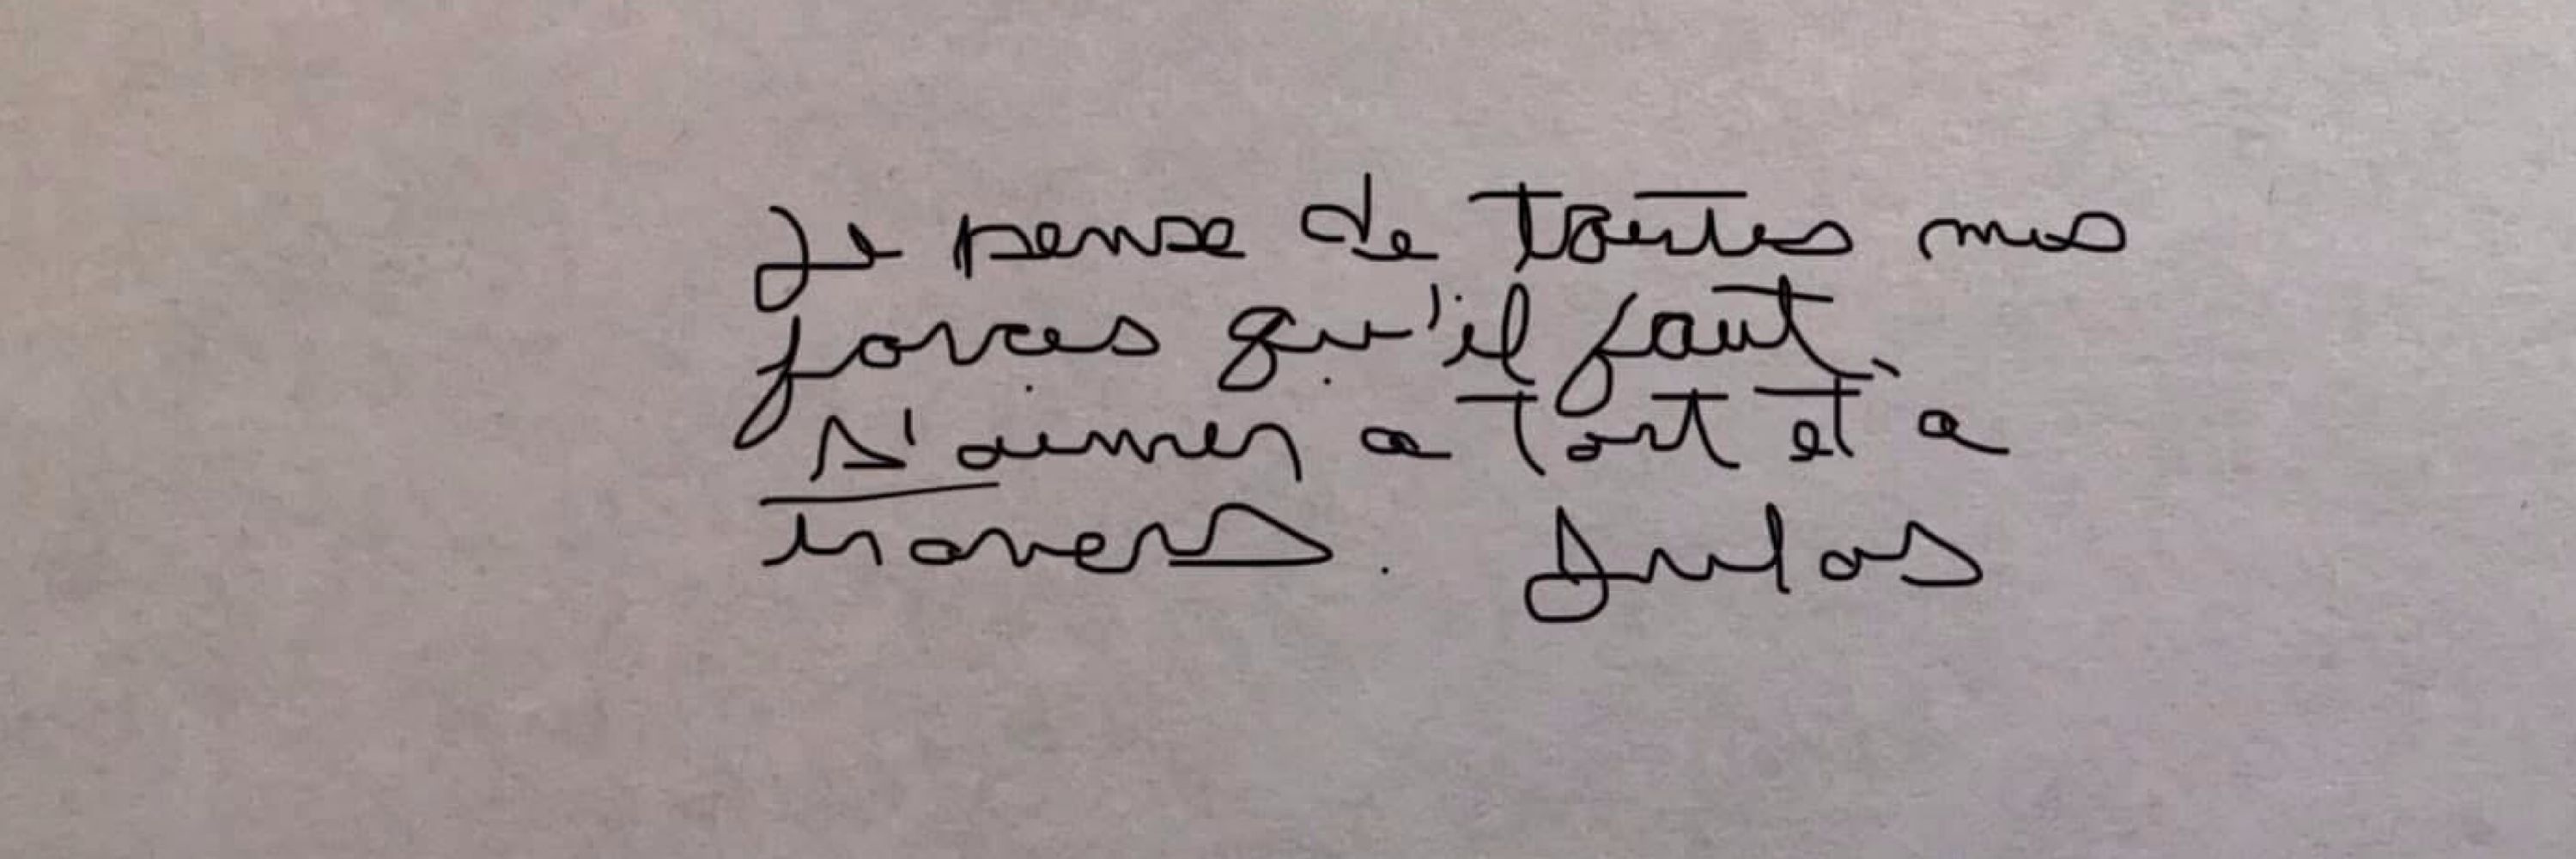 Je pense de toutes mes
forces qu'il faut
s'aimer a tort et à
travers. Julos